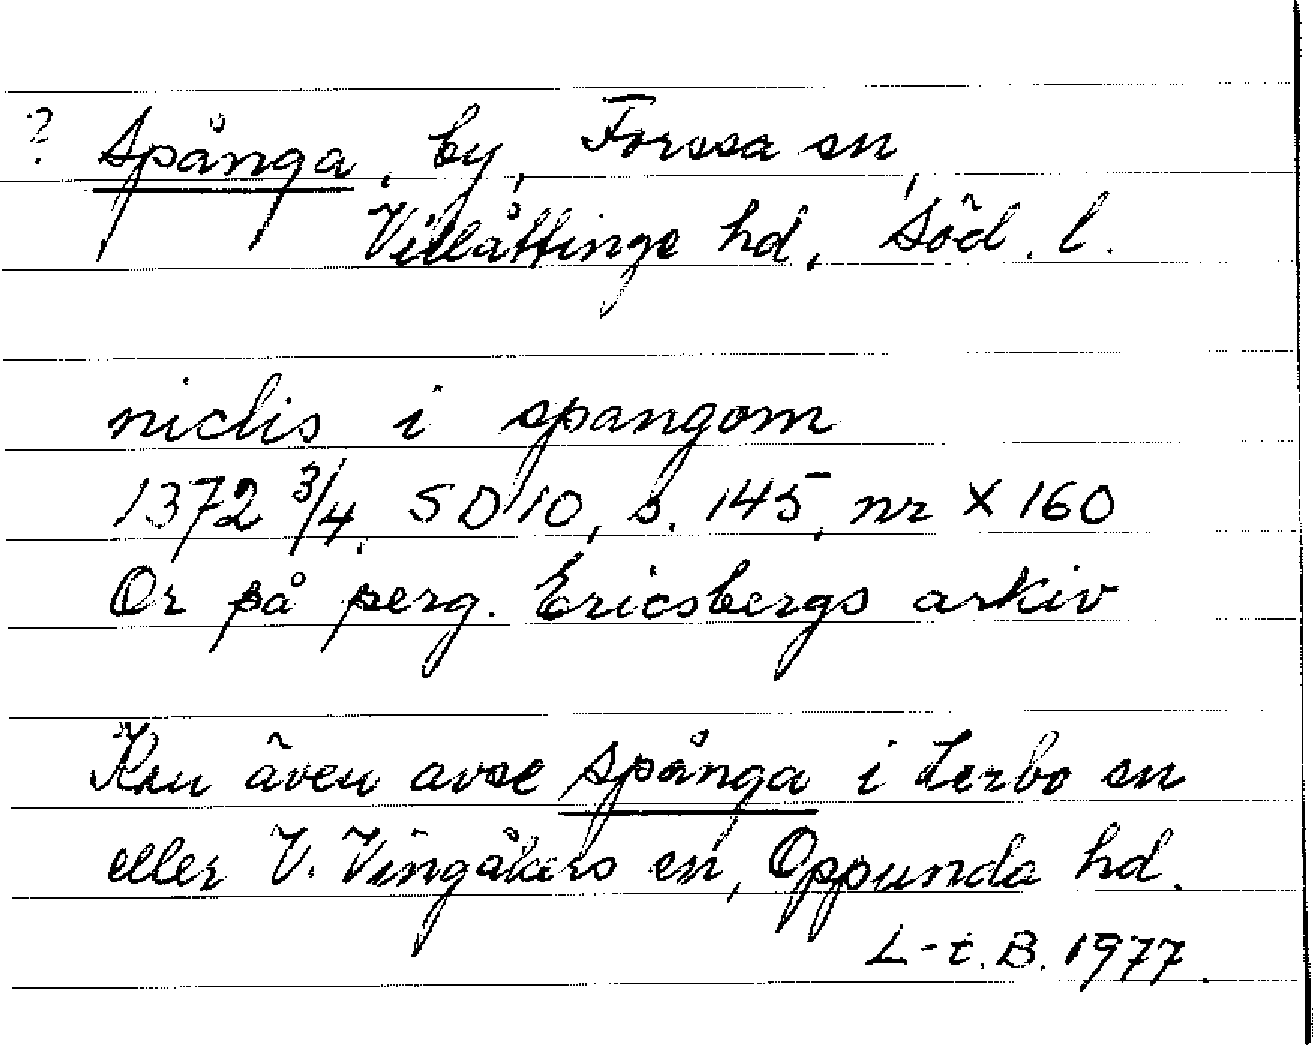 ? Spånga, by, Forssa sn,
Villåttinge hd, Söd. l.
niclis i spangom
1372 3/4, SD 10, s. 145, nr X 160
Or på perg. Ericsbergs arkiv
Kan även avse Spånga i Lerbo sn
eller V. Vingåkers sn, Oppunda hd.
L-t. B. 1977.